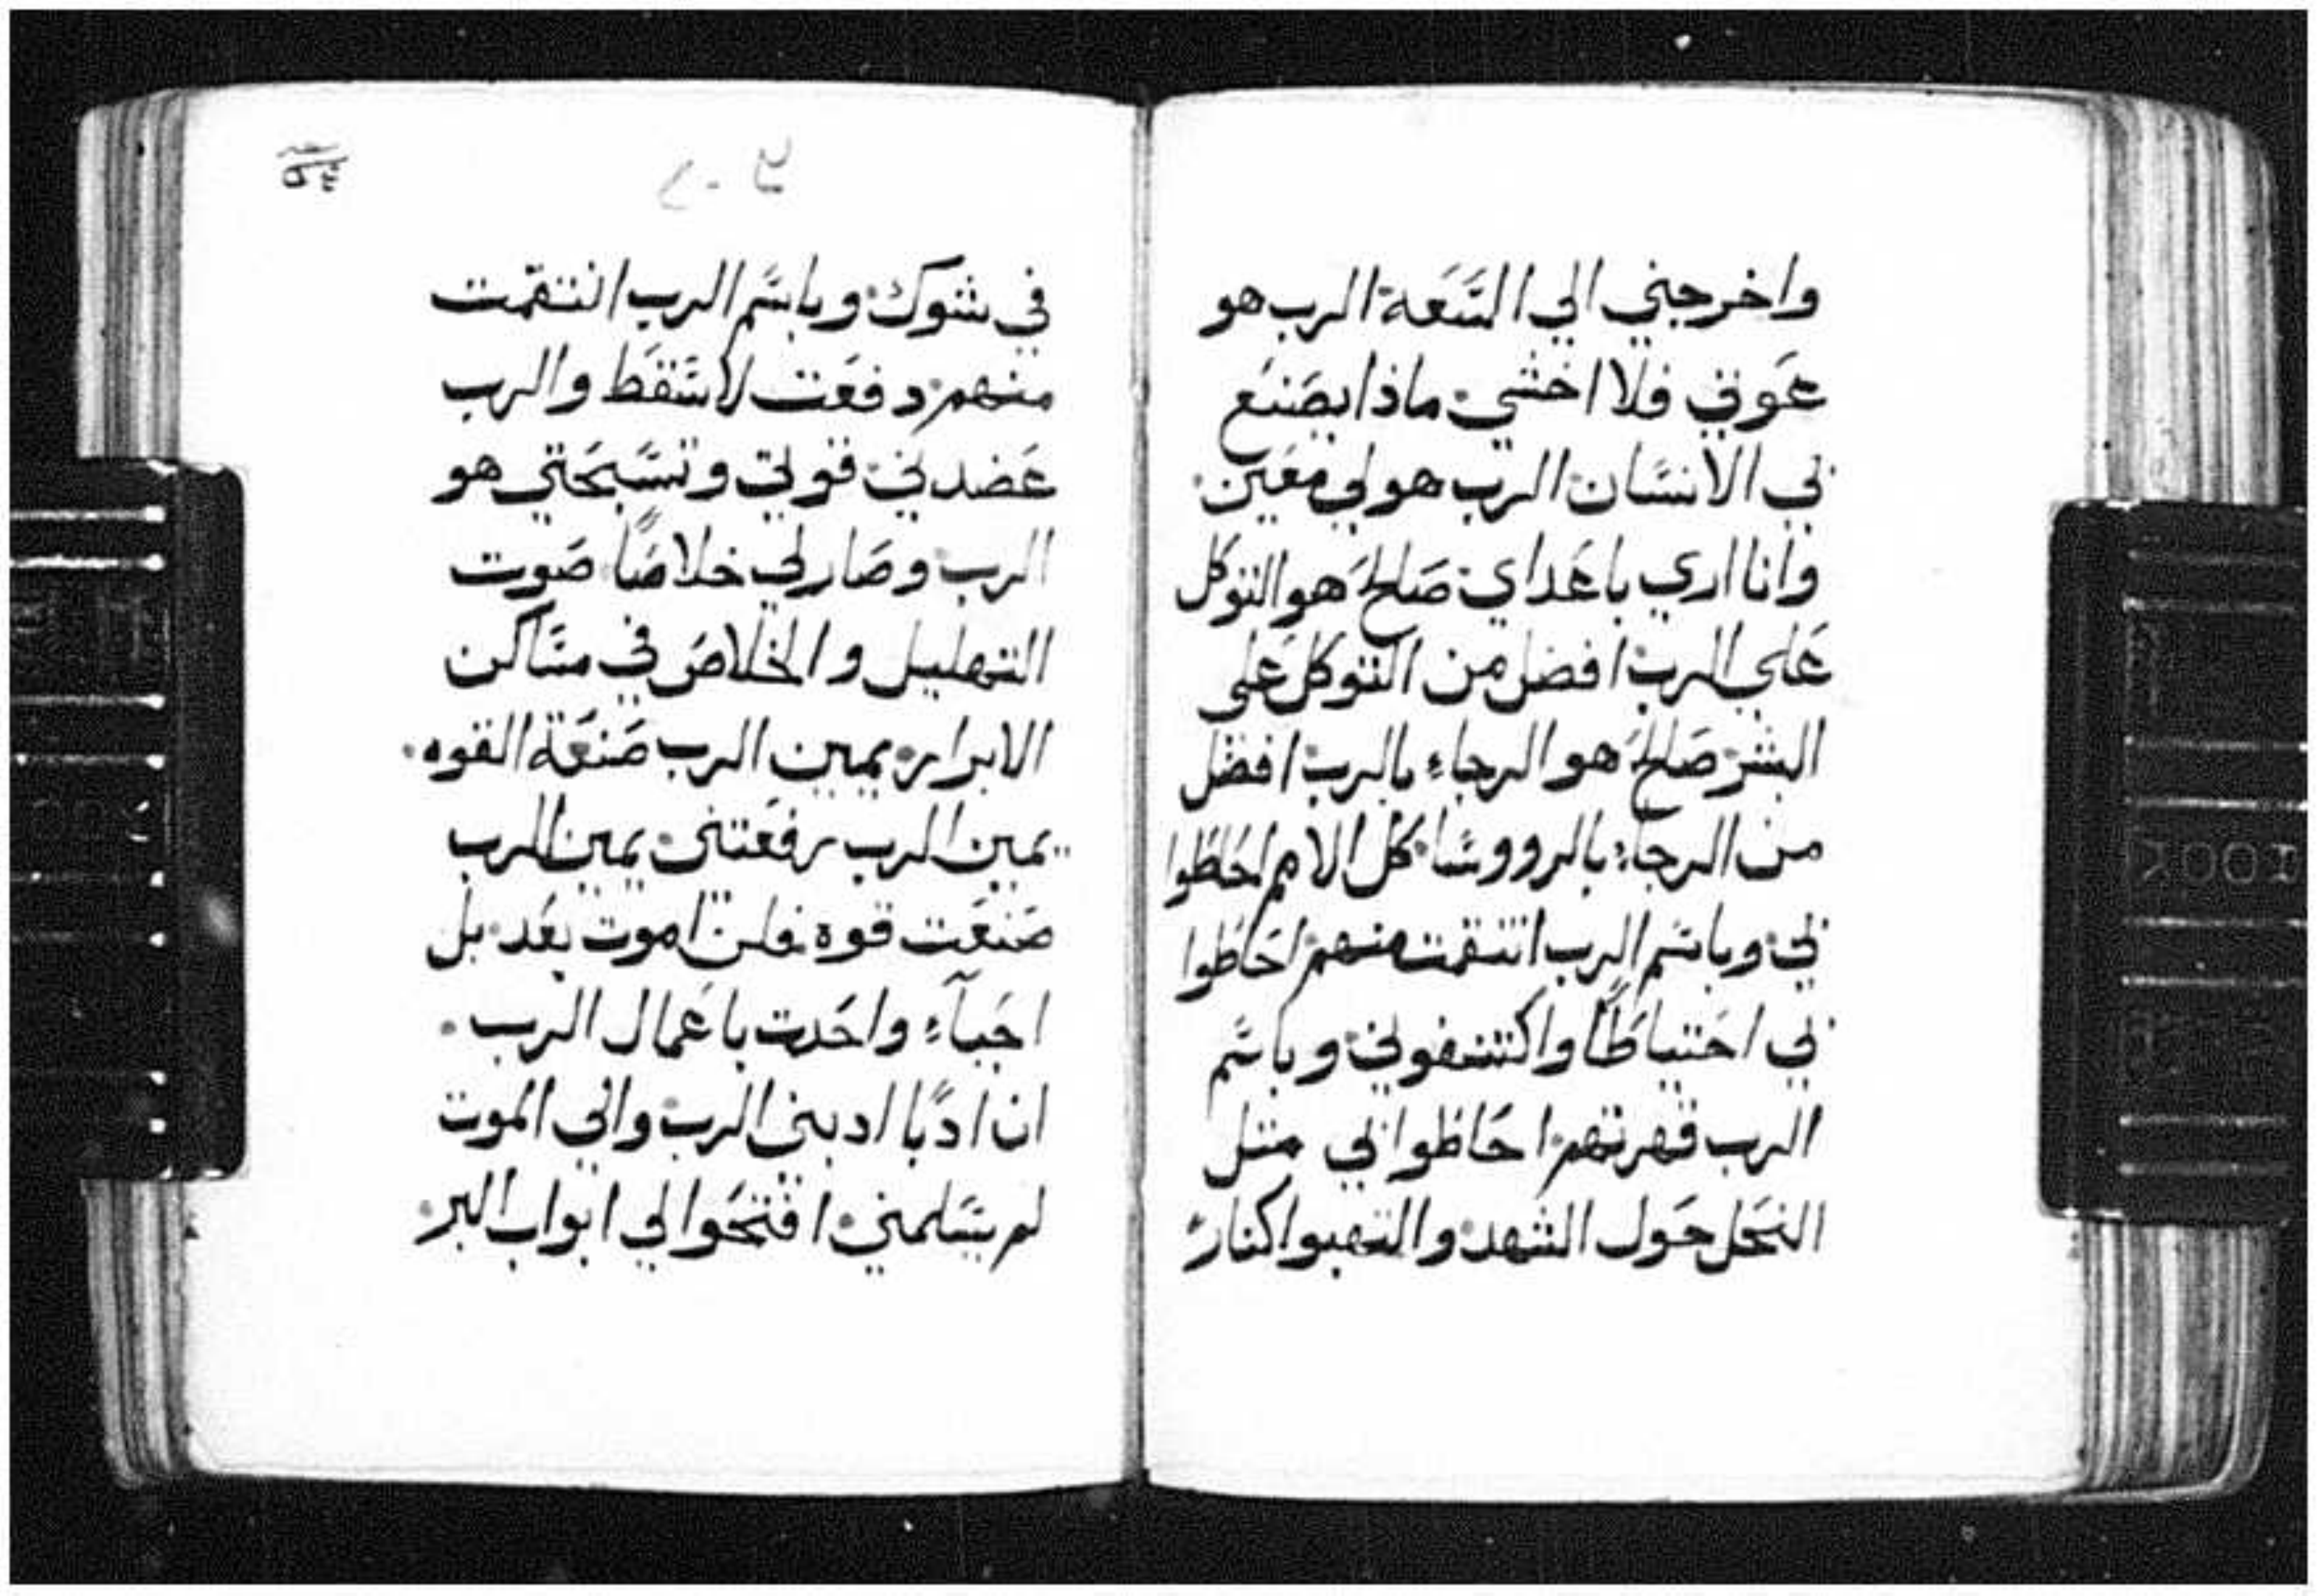 واخرجني الي السَعَة الرب هو
عَوني فلا اخشي ماذا يصَنع
بي الانسَان الرب هو لي معَين
وانا اري باعَداي صَالحَ هو التوكل
عَلي الرب افضل من التوكل عَلي
البشر صَالحَ هو الرجاء بالرب افضل
من الرجاء بالرووسَا كل الامم احَاطوا
بي وباسَم الرب انتقمت منهم احَاطوا
بي احَتياطًا واكتنفوني وباسَم
الرب قهرتهم احَاطوا بي مثل
النحَل حَول الشهد والتهبوا كنار
في شوك وباسَم الرب انتقمت
منهم دفعَت لاسَقط والرب
عَضدني قوتي وتسَبحَتي هو
الرب وصَار لي خلاصًا صَوت
التهليل والخلاصَ في مسَاكن
الابرار يمين الرب صَنعَة القوه
يمين الرب رفعَتني يمين الرب
صَنعَت قوه فلن اموت بعَد بل
احَياء واحَدت باعَمال الرب
ان ادبًا ادبني الرب والي الموت
لم يسَلمني افتحَوا لي ابواب البر